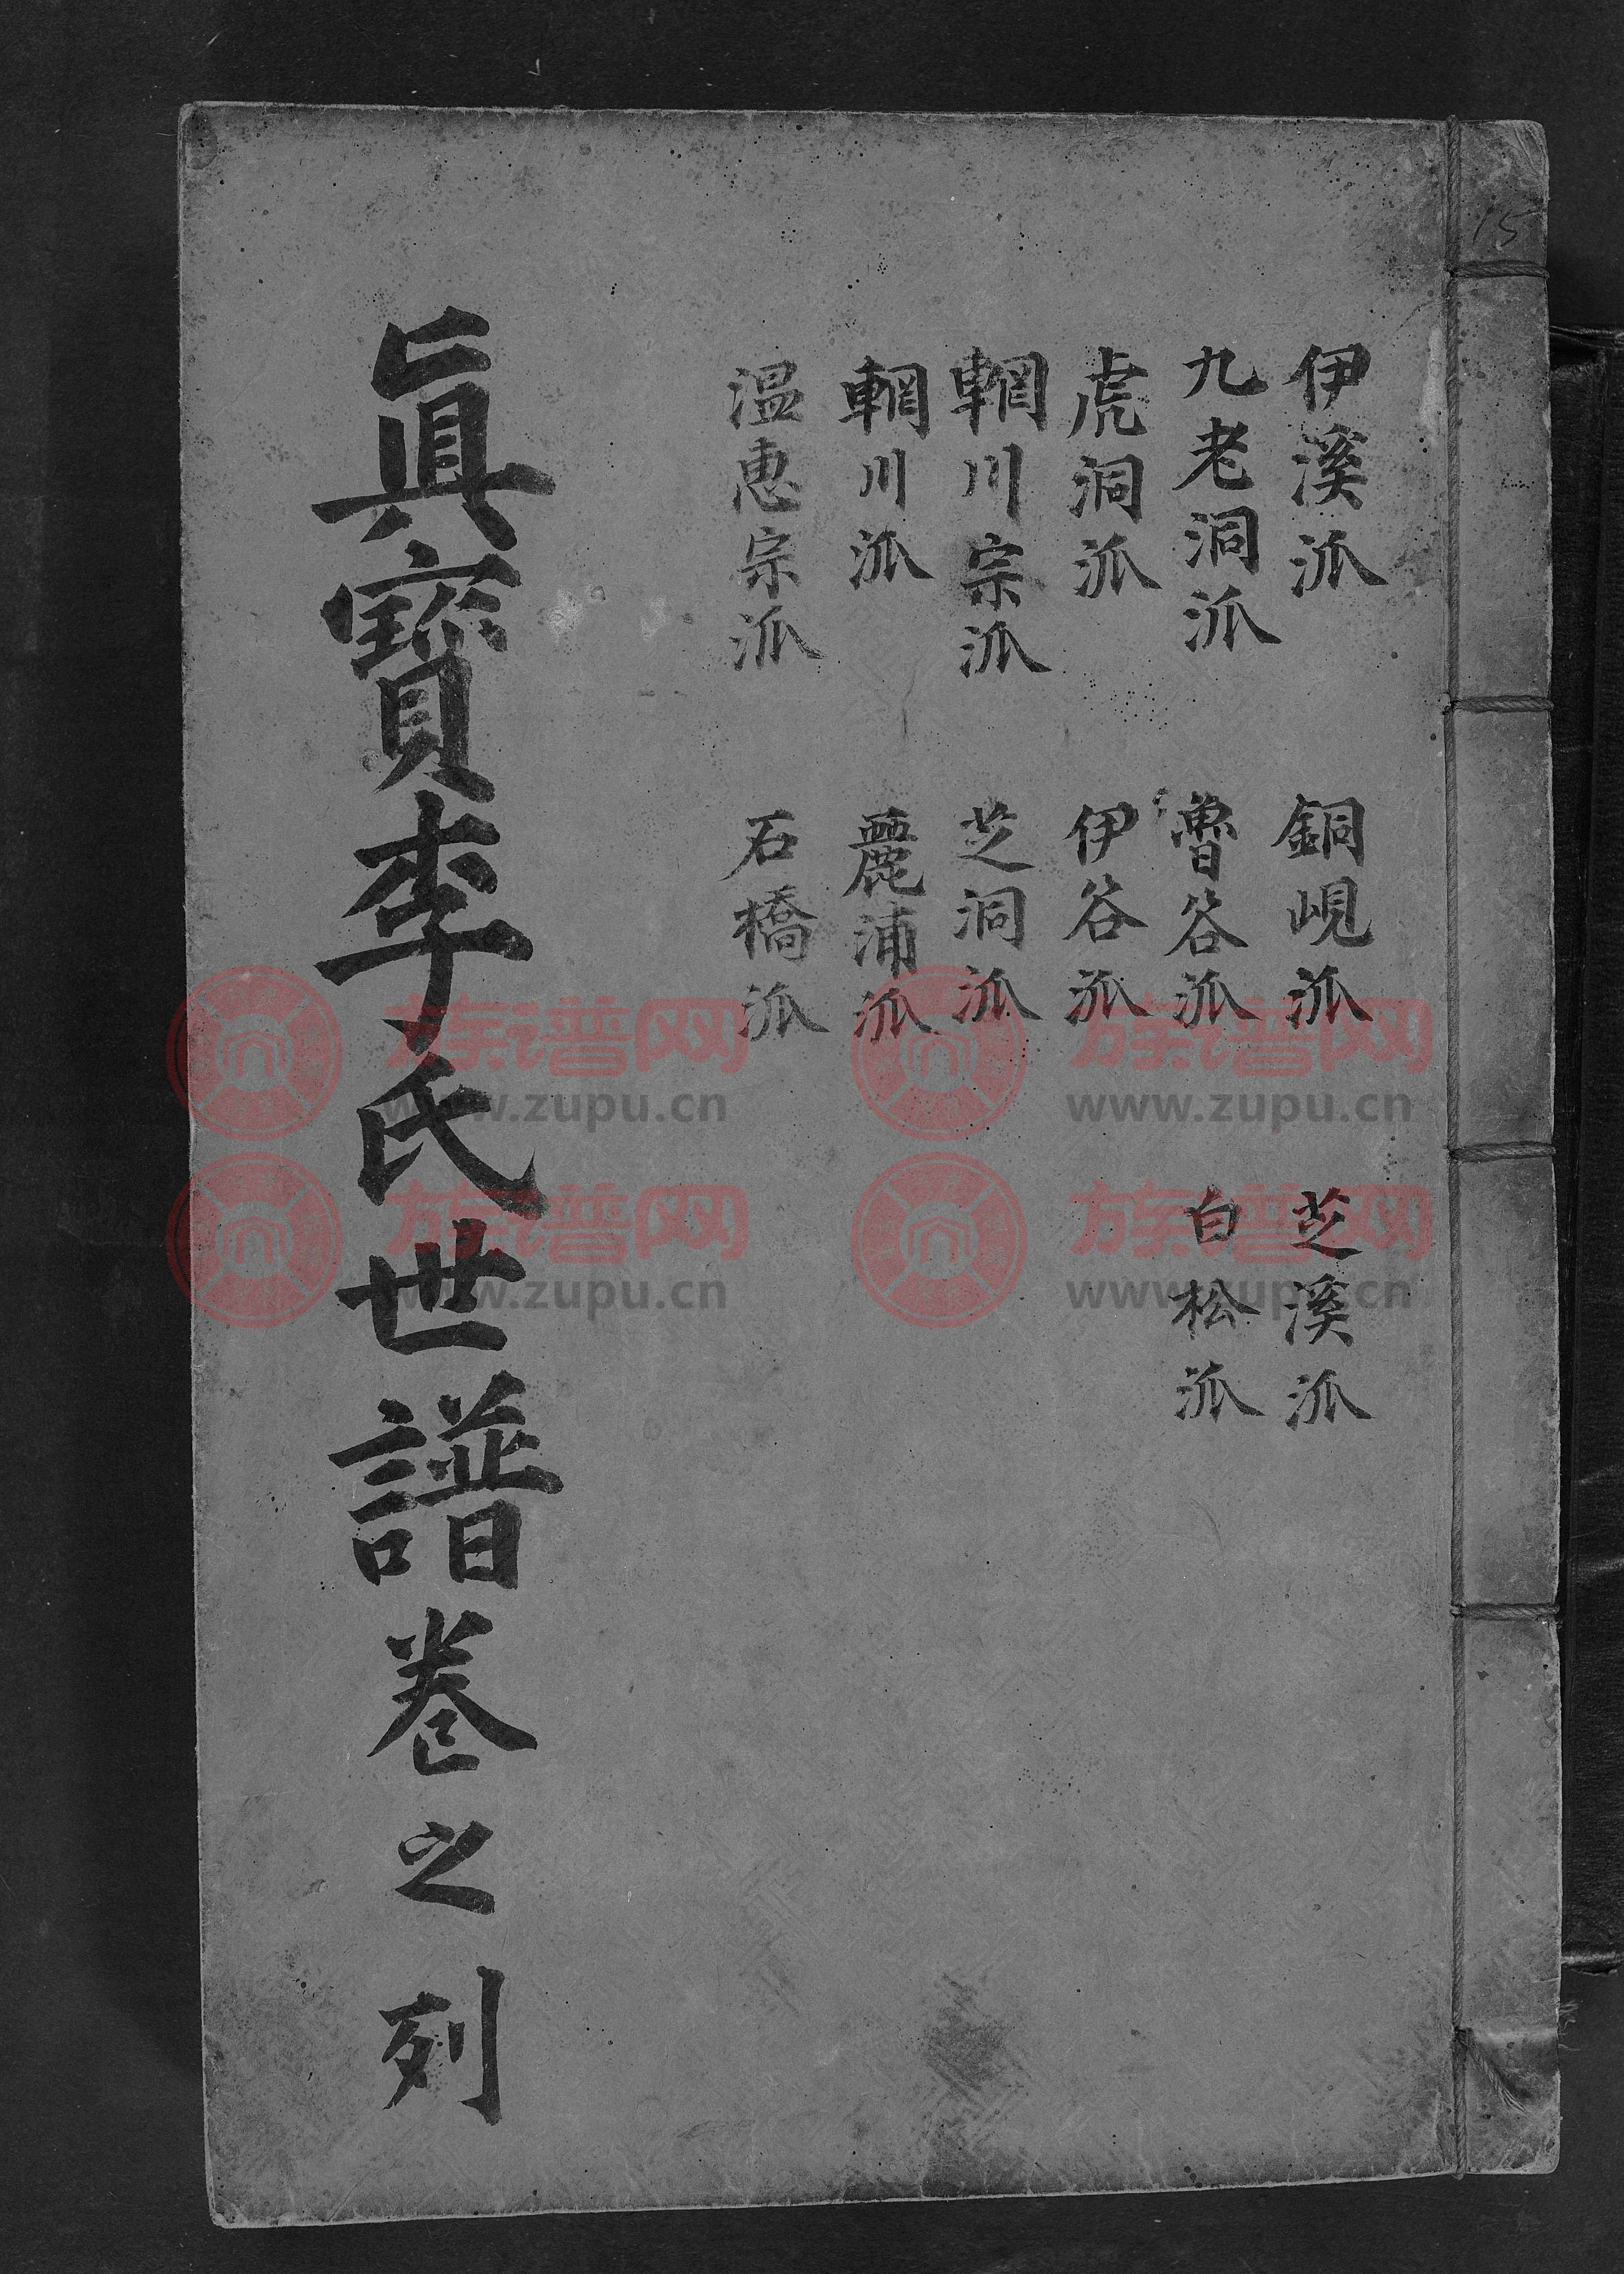 15
伊溪派
九老洞派
虎洞派
輞川宗派
輞川派
溫惠宗派
銅峴派
魯谷派
伊谷派
芝洞派
麗浦派
石橋派
芝溪派
白松派
眞寶李氏世譜卷之列
族谱网
www.zupu.cn
族谱网
www.zupu.cn
族谱网
www.zupu.cn
族谱网
www.zupu.cn